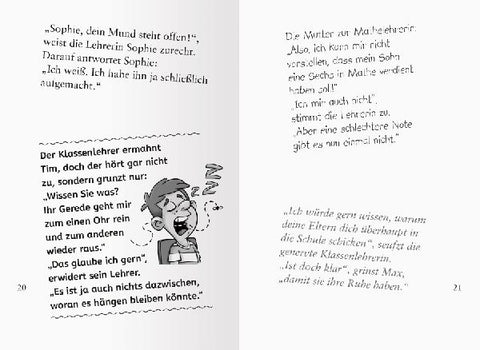 „Sophie, dein Mund steht offen!“,
weist die Lehrerin Sophie zurecht.
Darauf antwortet Sophie:
„Ich weiß. Ich habe ihn ja schließlich
aufgemacht.“
Der Klassenlehrer ermahnt
Tim, doch der hört gar nicht
zu, sondern grunzt nur:
„Wissen Sie was?
Ihr Gerede geht mir
zum einen Ohr rein
und zum anderen
wieder raus.“
„Das glaube ich gern“,
erwidert sein Lehrer.
„Es ist ja auch nichts dazwischen,
woran es hängen bleiben könnte.“
ZZZ
20
Die Mutter zur Mathelehrerin:
„Also, ich kann mir nicht
vorstellen, dass mein Sohn
eine Sechs in Mathe verdient
haben soll!“
„Ich mir auch nicht“,
stimmt die Lehrerin zu.
„Aber eine schlechtere Note
gibt es nun einmal nicht.“
„Ich würde gern wissen, warum
deine Eltern dich überhaupt in
die Schule schicken“, seufzt die
genervte Klassenlehrerin.
„Ist doch klar“, grinst Max,
„damit sie ihre Ruhe haben.“
21